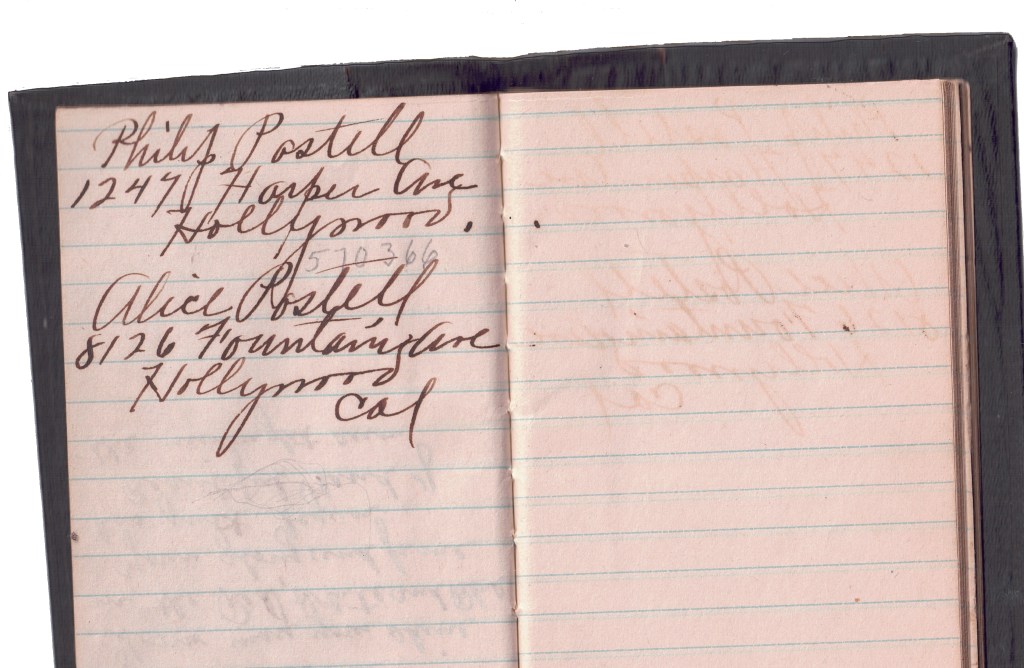 Philip Postell
1247 Harper Ave
Hollywood.
570366
Alice Postell
8126 Fountaing Ave
Hollywood
Cal